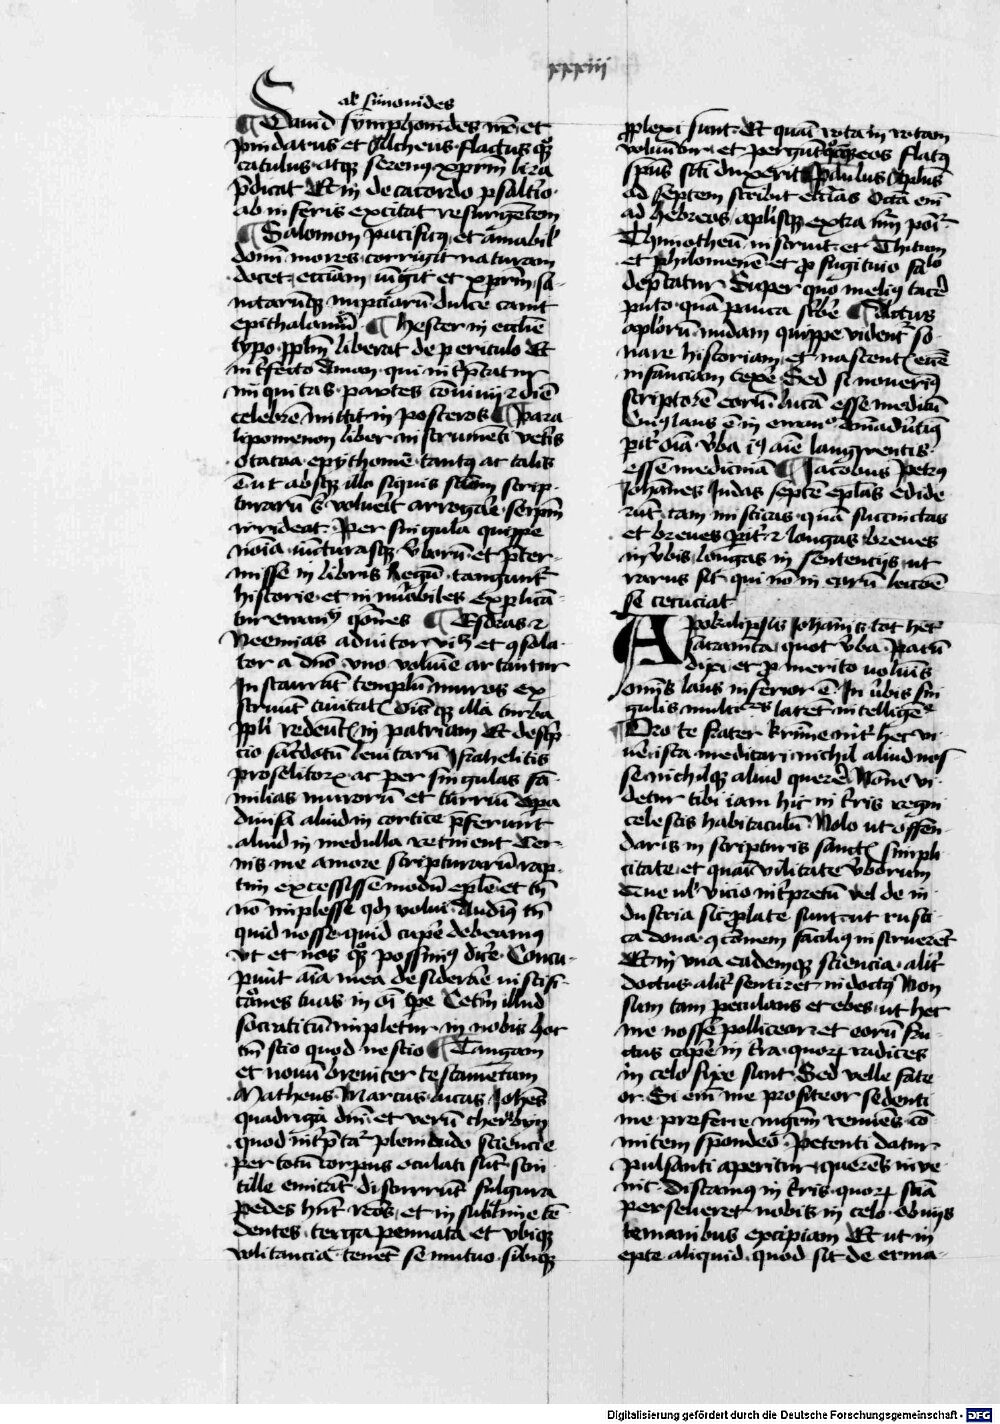 xxxiii
al symonides
¶ Dauid symphonides nr̄ et
pindarus et Alcheus flactus qͦꝫ
catulus atqꝫ serenꝯ xp̄m lira
ꝑsonat Et in decacordo psalt'io
ab inferis excitat resurgētem
¶ Salomon pacificꝯ et amabil'
domī mores corrigit naturam
docet eccl̄iam iungit et xp̄m sā
ctarūqꝫ nupciarū dulce canit
epithalamiū ¶ Hester in eccl̄ie
typo pp̄lm liberat de periculo Et
int'fecto Aman qui int'p̄tatur
iniquitas partes cōuiuij ⁊ diē
celebrē mittit in posteros ¶ Para
lipomenon liber instrumēti vet'is
epythome tantꝯ ac talis
ē ut absqꝫ illo siquis sciam scrip
turarū s' voluerit arrogare seip̄m
irrideat Per singula quippe
noīa iuncturasqꝫ v'borū et p̄ter
misse in libris Regū tangunt'
historie et in nu'abiles explicā
tur ewangꝭ q̄ones ¶ Esdras ⁊
Neemias adiutor vꝫ et ꝯsola
tor a dn̄o vno volumīe artantur
Instaurāt templū muros ex
struūt ciuitatꝭ oīsqꝫ illa turba
pp̄li redeūtꝭ in patriam Et descp̄
cio sac'dotū leuitarū Israhelitis
proselitorꝫ ac per singulas fā
milias murorū et turriū opa
diuisa aliud in cortice p̄ferunt
aliud in medulla retinent Cer
nis me amore scripturarū rap
tum excessisse modū epl̄e et tn̄
nō implesse qđ volui Audiuīꝯ tm̄
quid nosse quid cup̄e debeamꝯ
Vt et nos qͦꝫ possimꝯ dic'e Concu
piuit aīa mea desiderare iustifi
cac̄ones tuas in oī tp̄e Cet'm illud
socraticū impletur in nobis hoc
tm̄ scio quod nescio ¶ Tangam
et nouū breuiter testamētum
Matheus Marcus lucas Joh̄es
quadriga dn̄i et verū cherubyn
quod int'p̄tat' plenitudo sciencie
per totū corpus oculati sūt scin
tille emicāt discurrūt fulgura
pedes hn̄t rc̄os et in sublime tē
dentes terga pennata et vbiqꝫ
volitancia tenēt se mutuo sibiqꝫ
ꝑplexi sunt Et quasi rota in rotam
voluūtur et pergūt quocūqꝫ eos flatꝯ
sp̄us sc̄ti duxerit Paulus Apl̄us
ad septem scribit eccl̄ias Octā em̄
ad hebreos a pl'isqꝫ extra nūm poīt'
Thimotheū instruit et Thitum
et philomenē et ꝓ fugitiuo fa'lo
dep̄catur Super quo meliꝯ tac'e
puto quā pauca sc'be ¶ Actus
ap'lorū nudam quippe vident' so
nare historiam et nascentꝭ eccl̄ie
infanciam tex'e Sed si nouerimꝯ
scriptorē eorū lucā esse medicū
Cuiꝯ laus ē in ewang' aīaduertimꝯ
pit' oīa v'ba iꝯ aīe languentis
esse medicina ¶ Jacobus Petrꝯ
Johānes Judas septē epl̄as edide
rūt tam misticas quā succinctas
et breues pit' ⁊ longas breues
in v'bis longas in sentencijs ut
rarus sit qui nō in earū lectōe
se cecuciat
Apokalipsis Johānis tot het'
sacramēta quot v'ba Parū
dixi et ꝓ merito volumīs
omīs laus inferior ē In v'bis sin
gulis multiplices latēt intelligēcie
¶ Oro te frater karissime int' hec vi
u'e ista meditari nichil aliud nos
se nichilqꝫ aliud quer'e Nōne vi
detur tibi iam hic in t'ris regni
celestis habitaculū Nolo ut offen
daris in scripturis sanctꝭ simpli
citate et quasi vilitate v'borum
que ul' vicio int'p̄tum vel de in
dustria sic ꝓlate sunt ut rusti
ca ꝯc̄onem facilius instruerēt
Et in vna eademqꝫ sciencia alit'
doctus alit' sentiret indoctꝯ Non
sum tam petulans et ebes ut hec
me nosse pollicear et eorū fru
ctus cap'e in t'ra quorꝫ radices
in celo fixe sunt Sed velle fate
or Et em̄ me profiteor sedenti
me prefero mgr̄m renuēs cō
mitem spondeo Petenti datur
pulsanti aperitur querēs inue
nit Discamus in t'ris quorꝫ sciā
perseueret nobis in celo Obuijs
te manibus excipiam Et ut in
epte aliquid quod sit de erma
Digitalisierung gefördert durch die Deutsche Forschungsgemeinschaft - DFG